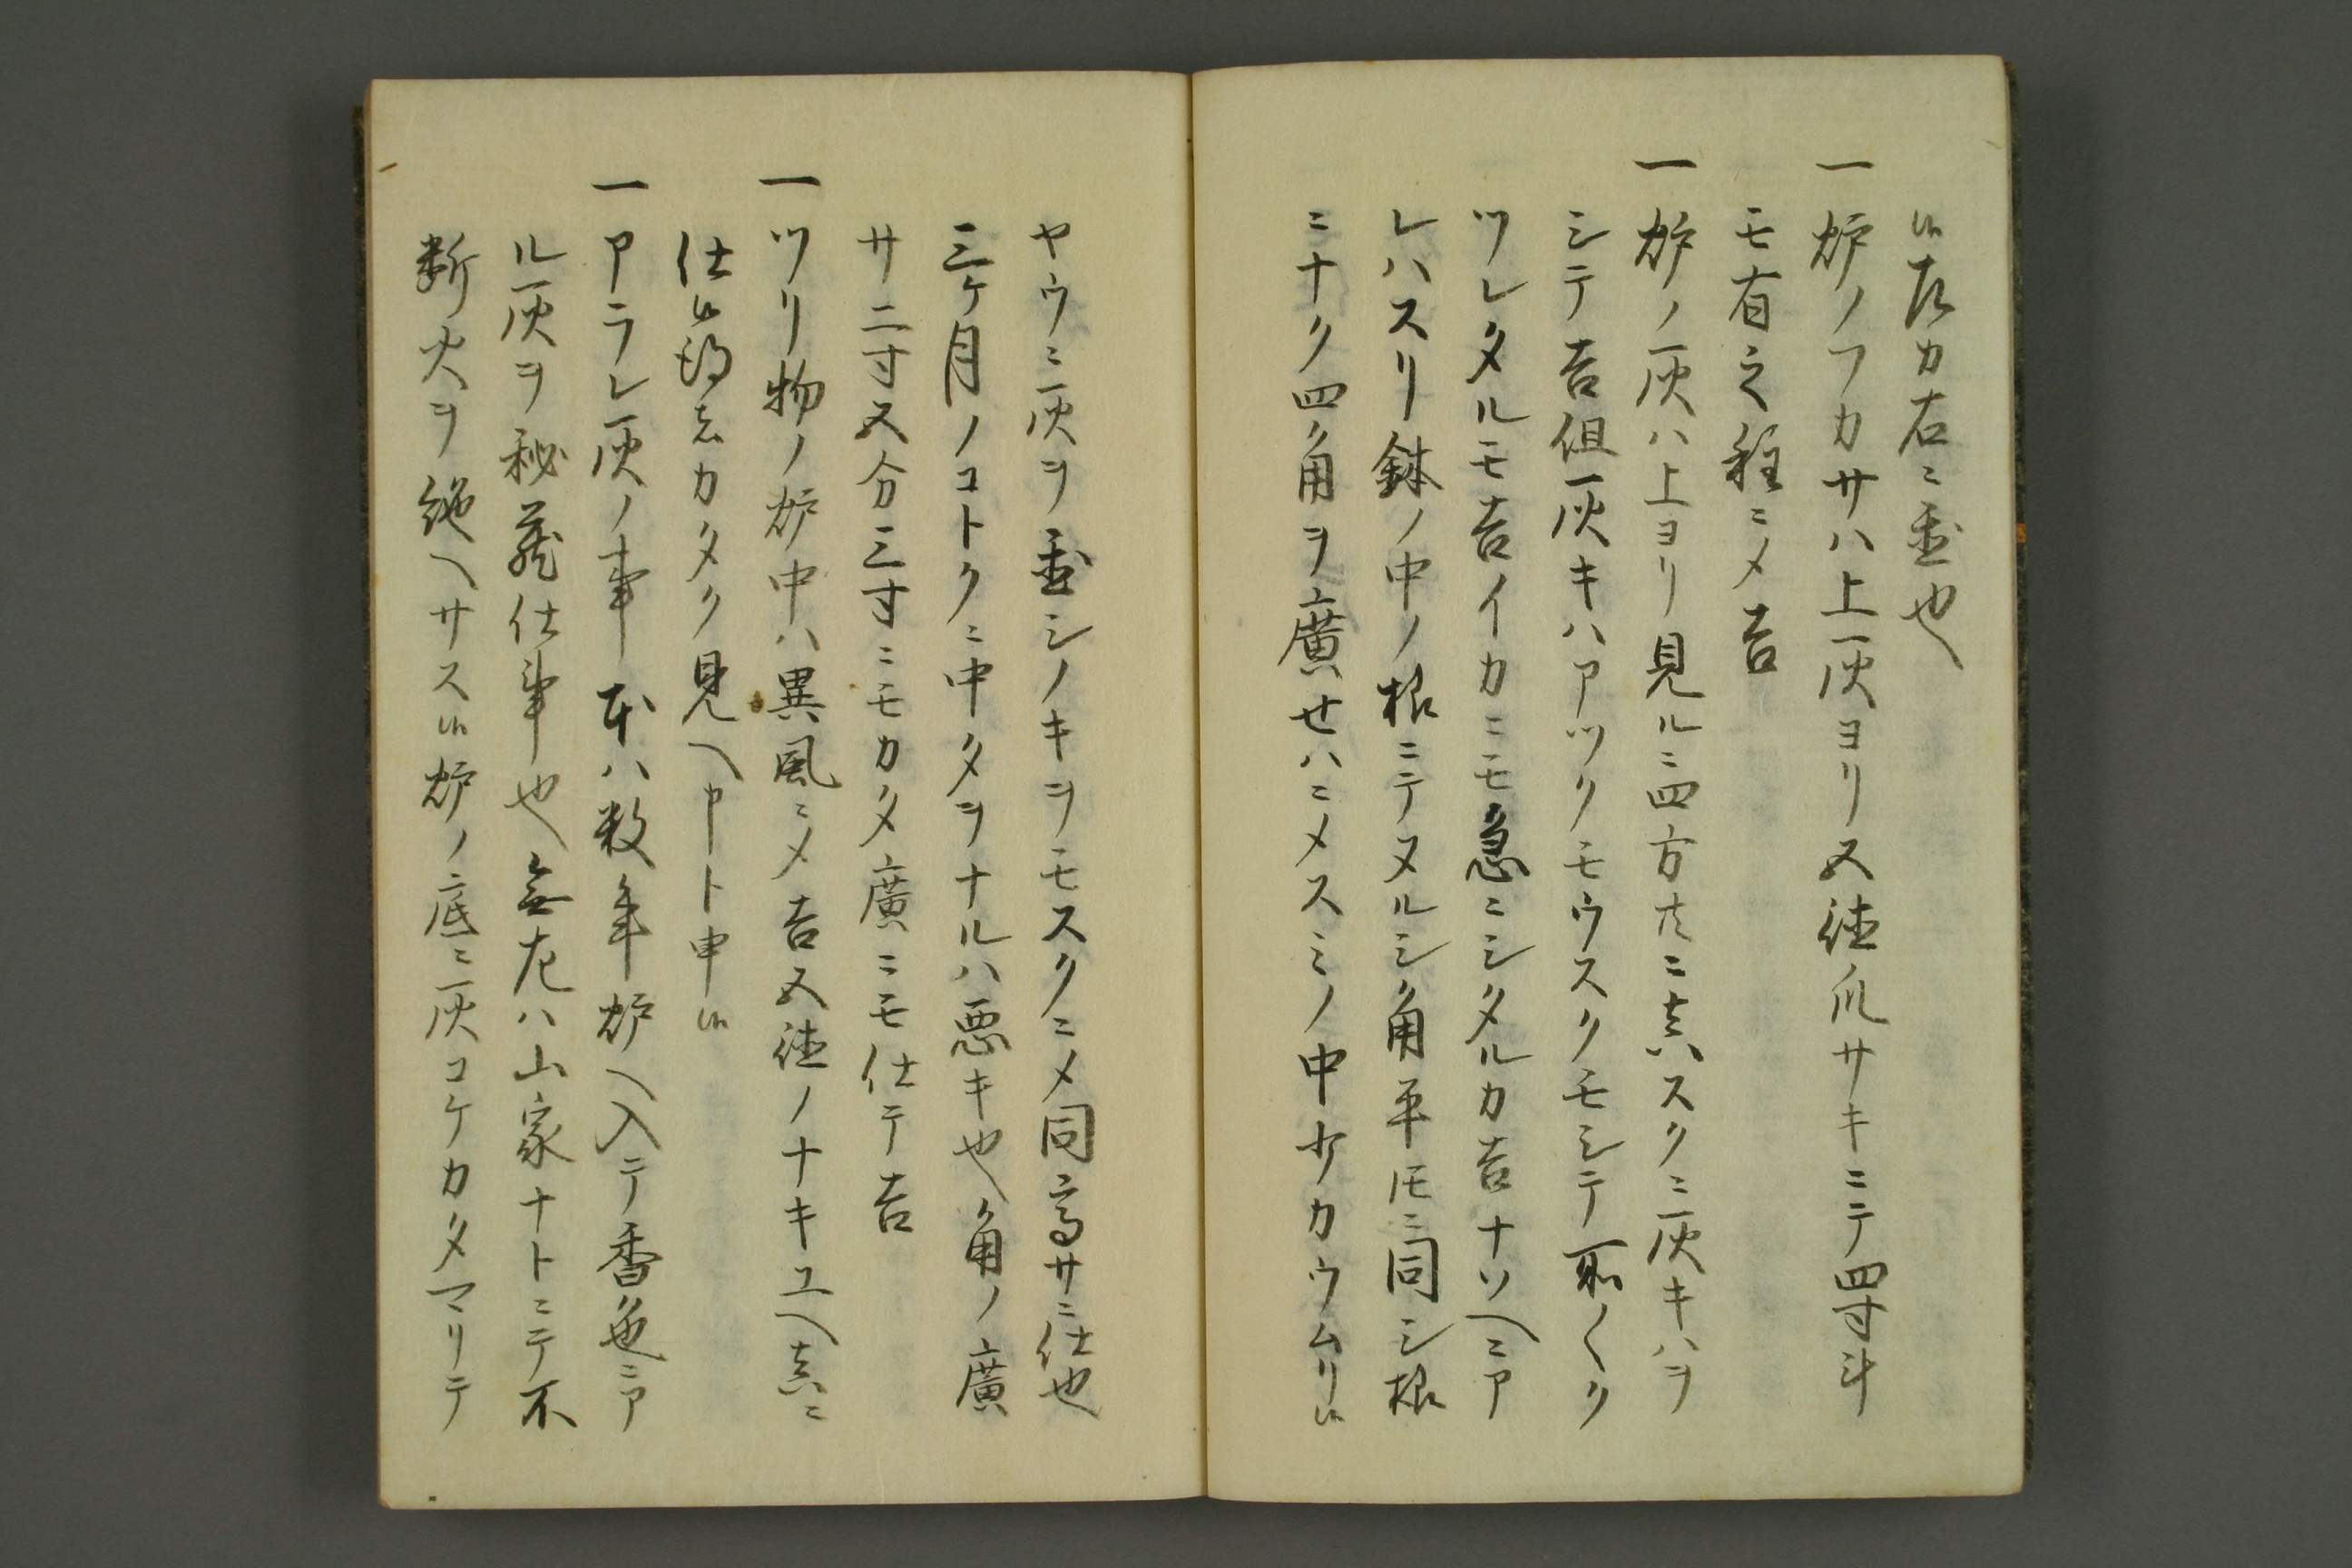 候左カ右ニ置也
一炉ノフカサハ上灰ヨリ五徳爪サキニテ四寸斗
モ有之程ニメ吉
一炉ノ灰ハ上ヨリ見ル三四方共ニ真スクニ灰キハヲ
シテ吉但灰キハアツクモウスクモシテ所〱ク
ツレタルモ吉イカニモ急ニシタルカ吉ナソヘニア
レハスリ鉢ノ中ノ根ニテヌルシ角平トモニ同シ根
ニナク四角ヲ廣セハニメスミノ中少カウムリ候
ヤウニ灰ヲ置シノキヲモスクニメ同高サニ仕也
三ケ月ノコトクニ中タヲナルハ悪キ也角ノ廣
サ二寸五分三寸ニモカタ廣ニモ仕テ吉
一ツリ物ノ炉中ハ異風ニメ吉五徳ノナキユヘ真ニ
仕候得者カタク見ヘ申ト申候
一アラレ灰ノ事本ハ数年炉ヘ入テ香色ニア
ル灰ヲ秘蔵仕事也無左ハ山家ナトニテ不
断火ヲ絶ヘサス候炉ノ底ニ灰コケカタマリテ